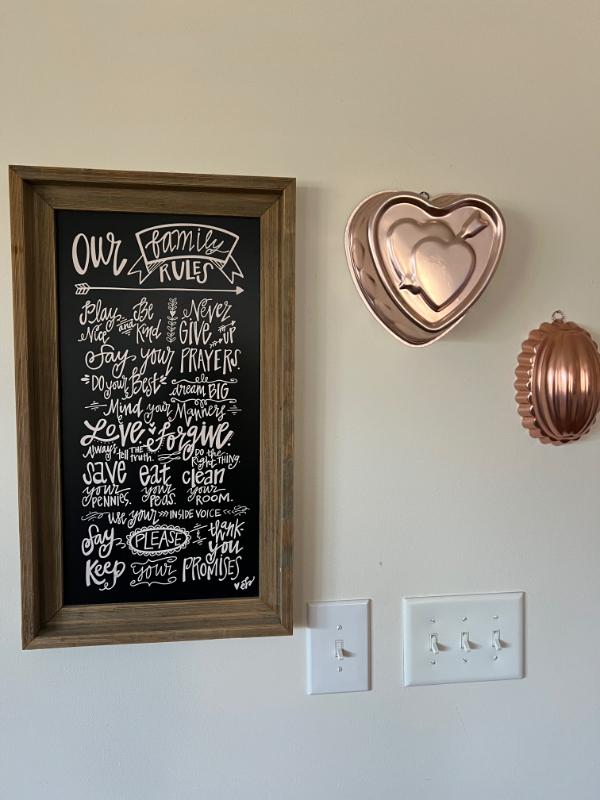 Our family RULES
Play Nice and Be Kind
Never GIVE up
Say your PRAYERS.
Do your Best dream BIG
Mind your Manners
Love Forgive
Always tell the truth. Do the Right THING.
save your PENNIES. eat your PEAS. clean your ROOM.
use your INSIDE VOICE
Say PLEASE & thank you
Keep your PROMISES